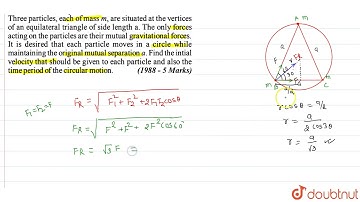 Three particles, each of mass m, are situated at the vertices
of an equilateral triangle of side length a. The only forces
acting on the particles are their mutual gravitational forces.
It is desired that each particle moves in a circle while
maintaining the original mutual separation a. Find the intial
velocity that should be given to each particle and also the
time period of the circular motion. (1988 - 5 Marks)
F₁=F₂=F
F_R = √(F₁² + F₂² + 2F₁F₂cosθ)
F_R = √(F² + F² + 2F²cos60°)
F_R = √3 F =
A m
a
a
F_R
F
F
30
m
B
C
m
a/2
r cos θ = a/2
r = a / 2cos30
r = a/√3
doubtnut